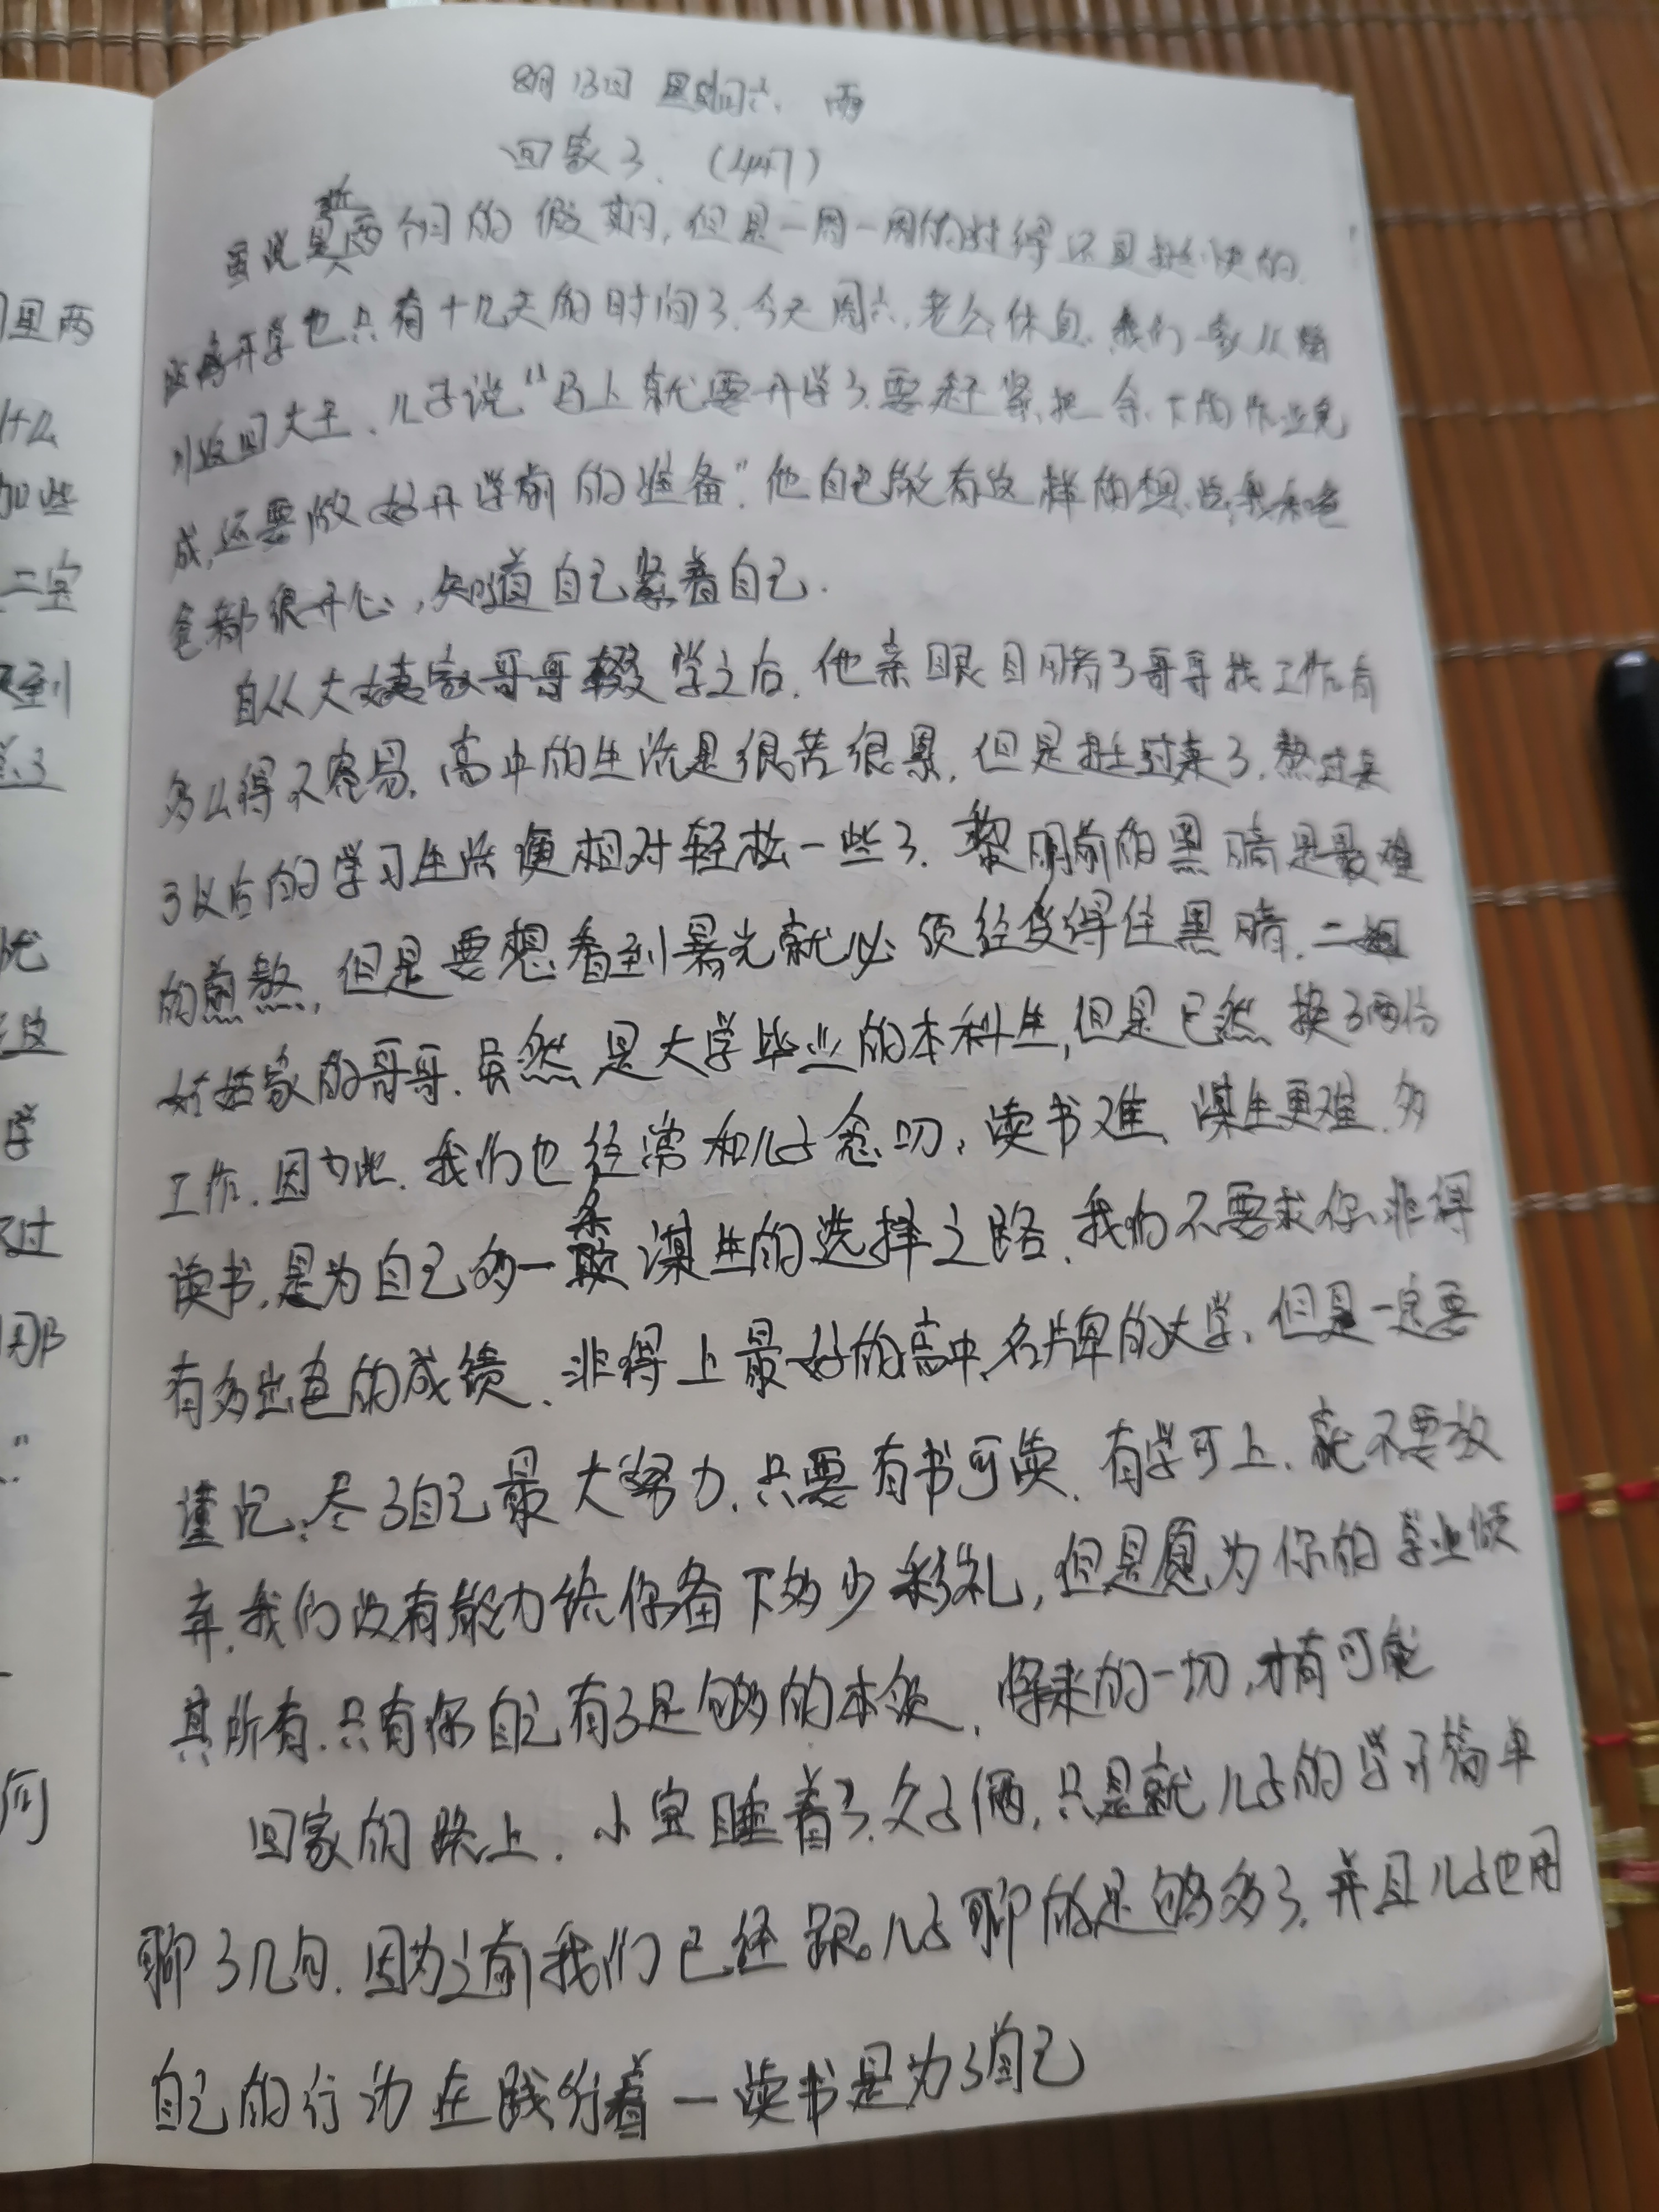 8月13日 星期六 雨
回家了. (447)
虽说是暂两个月的假期,但是一周一周的过得还是挺快的.
距离开学也只有十几天的时间了.今天周六,老公休息.我们一家从
返回大王.儿子说"马上就要开学了.要赶紧把余下的作业完
成,还要做好开学前的准备".他自己能有这样的想法,我和爸
爸都很开心,知道自己紧着自己.
自从大姨家哥哥辍学之后.他亲眼目睹了哥哥找工作有
多么得不容易.高中的生活是很苦很累,但是挺过来了.熬过来
了以后的学习生活便相对轻松一些了.黎明前的黑暗是最难
的煎熬,但是要想看到曙光就必须经受得住黑暗.二姐
姑姑家的哥哥.虽然是大学毕业的本科生,但是已然换了两份
工作.因为此.我们也经常和儿子念叨,读书难、谋生更难.多
读书,是为自己多一条谋生的选择之路.我们不要求你非得
有多出色的成绩、非得上最好的高中、名牌的大学,但是一定要
谨记:尽了自己最大努力.只要有书可读.有学可上.就不要放
弃.我们没有能力给你备下多少彩礼,但是愿为你的学业倾
其所有.只有你自己有了足够的本领,将来的一切,才有可能
回家的路上.小宝睡着了.父子俩,只是就儿子的学习简单
聊了几句.因为之前我们已经跟儿子聊的足够多了.并且儿子也用
自己的行动在践行着一读书是为了自己
里两
十几
加些
二字
学
何